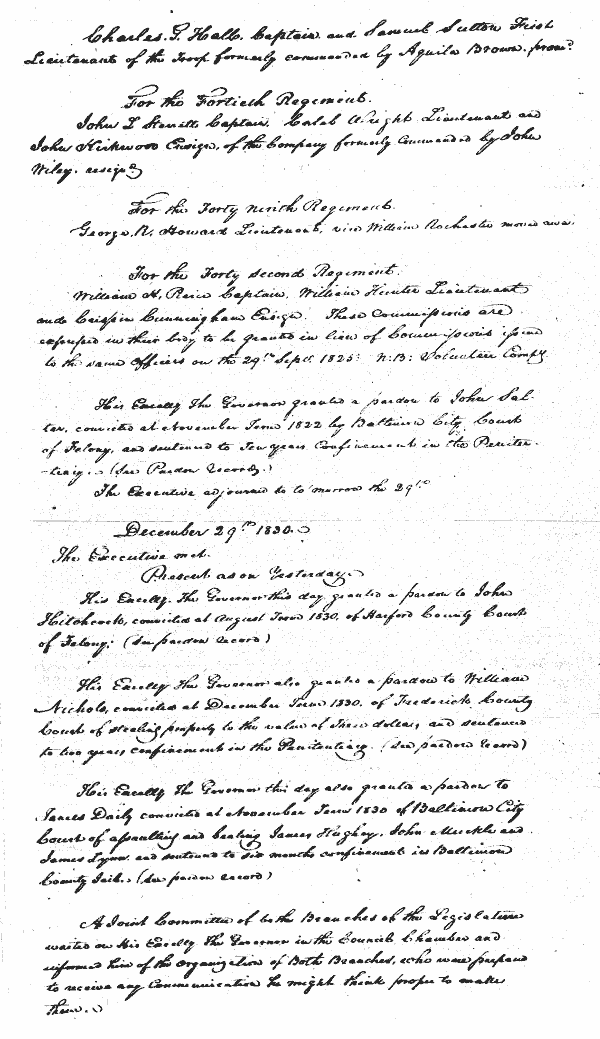 Charles G. Hall, Captain and Samuel Sutton First
Lieutenant of the Troop formerly commanded by Aquila Brown. prom.d
For the Fortieth Regiment.
John L Captain, Caleb Wright, Lieutenant and
John Kirkwood Ensign, of the Company formerly Commanded by John
Wiley. resign.d
For the Forty ninth Regiment.
George R. Howard Lieutenant, vice William Rochester moved away
For the Forty second Regiment.
William H. Captain, William Hunter Lieutenant
and Crispin Cunningham Ensign. These Commissions are
expressed in their body to be granted in lieu of Commissions issued
to the same Officers on the 29th Sept. 1825: N:B: Volunteer Compy
His Excelly The Governor granted a pardon to John Sal-
ter, convicted at November Term 1822 by Baltimore City Court
of Felony, and sentenced to Ten years Confinement in the Peniten-
-tiary. (See Pardon Record.)
The Executive adjourned to to morrow the 29th
December 29th 1830.
The Executive met.
Present as on Yesterday.
His Excelly The Governor this day granted a pardon to John
Hitchcock, convicted at August Term 1830, of Harford County Court
of Felony. (See pardon record)
His Excelly The Governor also granted a pardon to William
Nichols, convicted at December Term 1830, of Frederick County
Court of stealing property to the value of Three dollars, and sentenced
to two years confinement in the Penitentiary. (See pardon record)
His Excelly The Governor this day also granted a pardon to
James Daily convicted at November Term 1830 of Baltimore City
Court of assaulting and beating James Hughey, John Muckle and
James Lynn and sentenced to six months confinement in Baltimore
County Jail. (See pardon record)
A Joint Committee of both Branches of the Legislature
waited on His Excelly The Governor in the Council Chamber and
informed him of the Organization of Both Branches, who were prepared
to receive any Communication he might think proper to make
them.